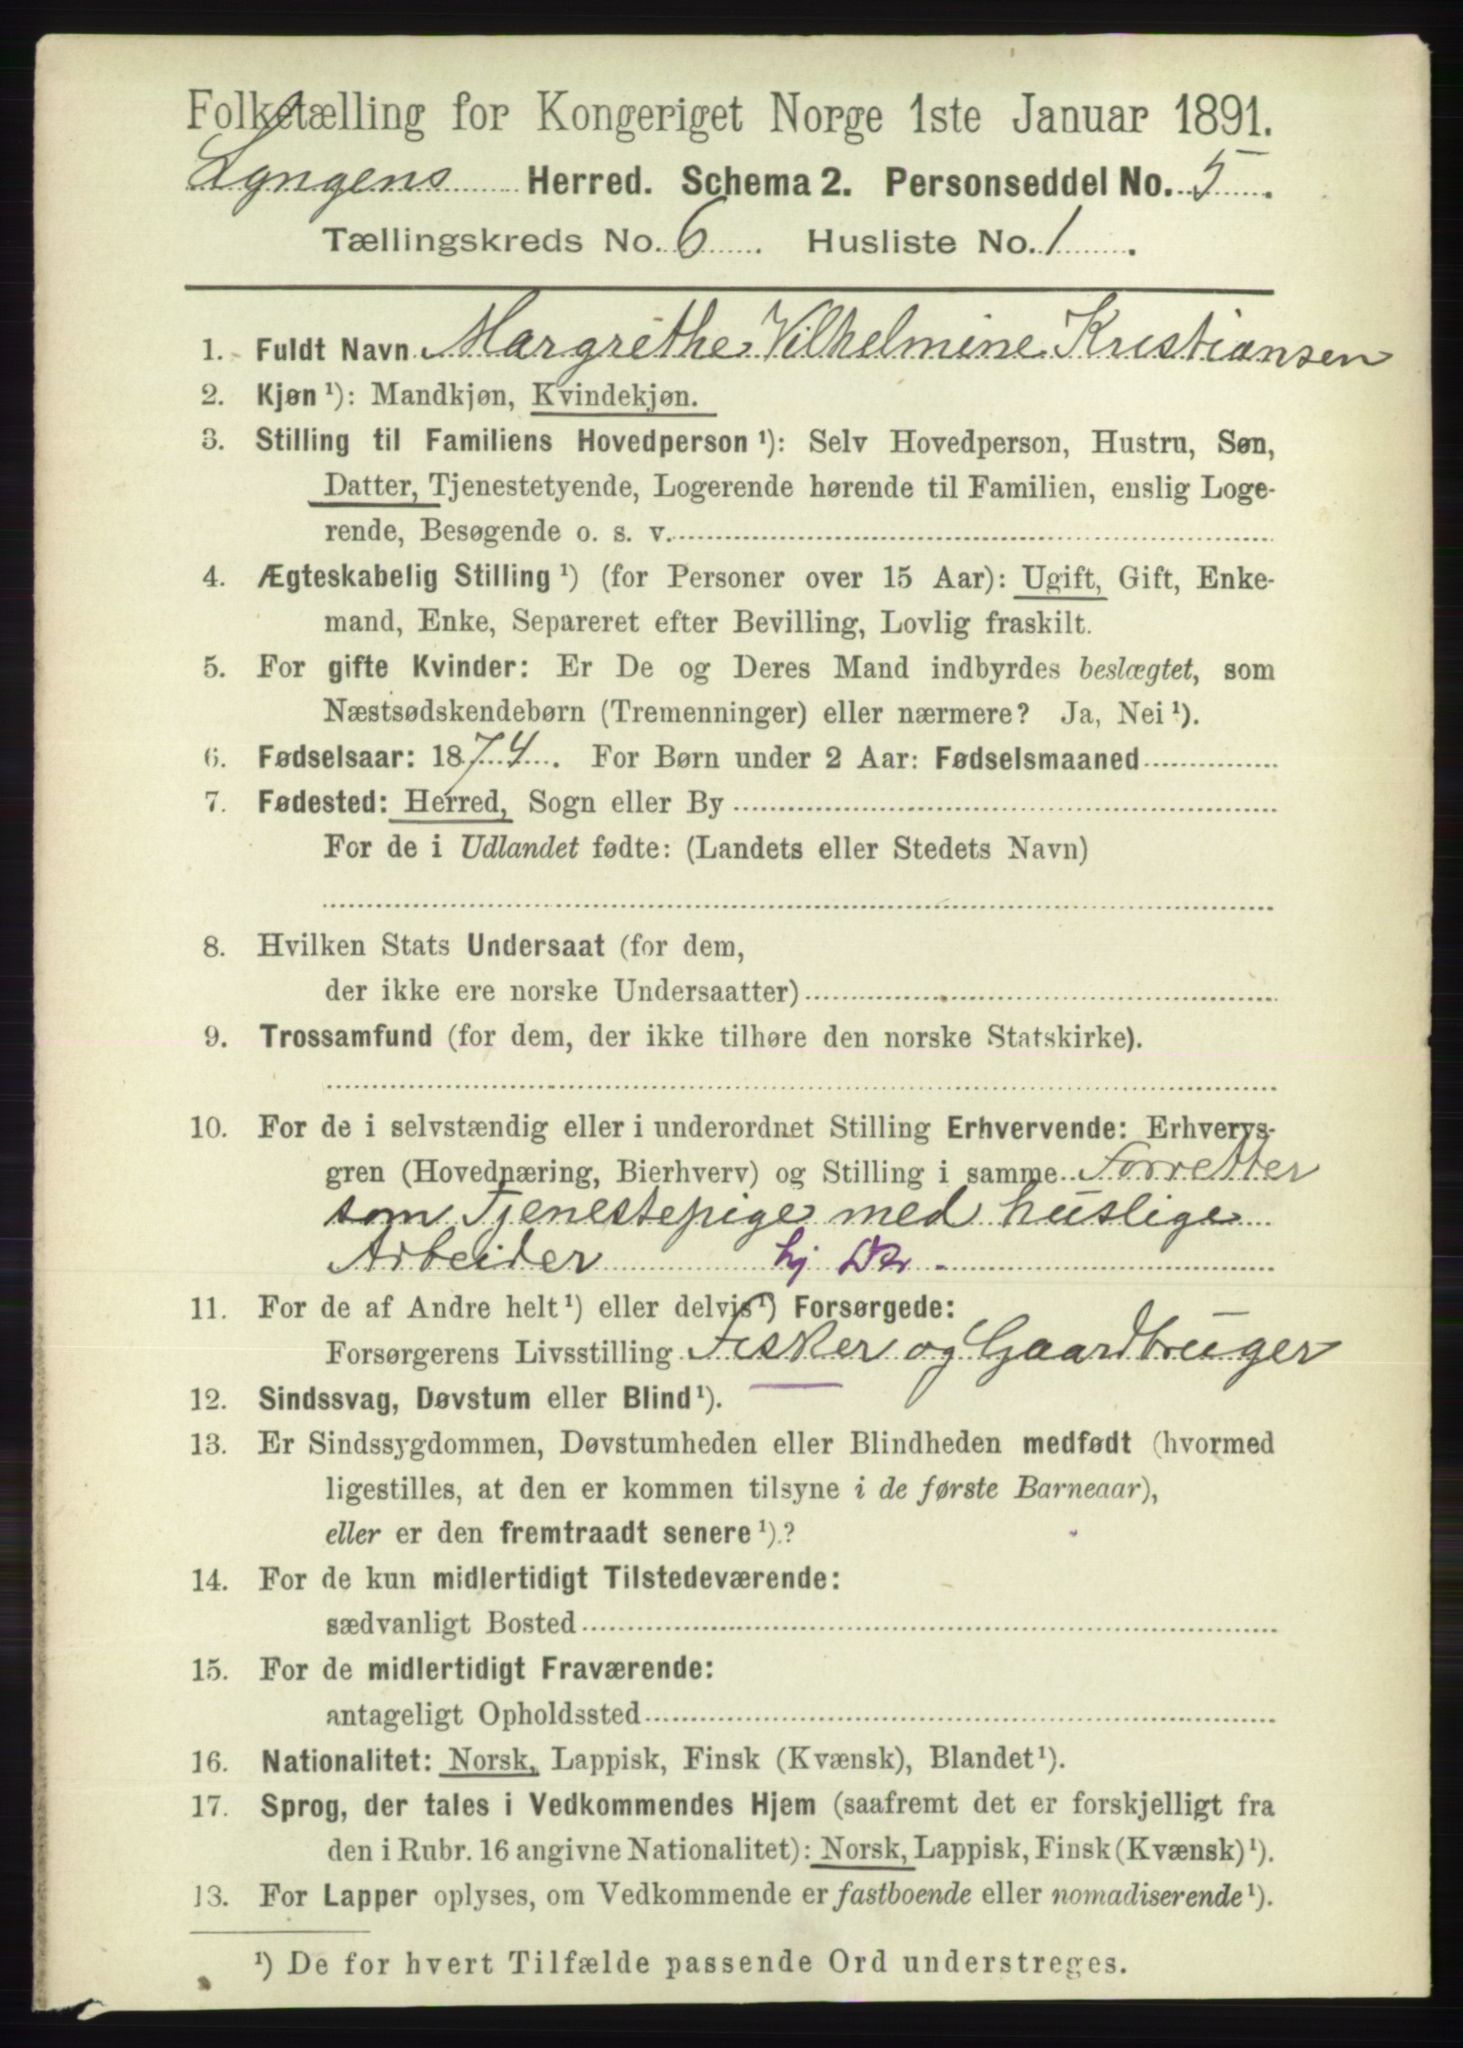 Folketælling for Kongeriget Norge 1ste Januar 1891.
Lyngens Herred. Schema 2. Personseddel No. 5.
Tællingskreds No. 6. Husliste No. 1.
1. Fuldt Navn Margrethe Vilhelmine Kristiansen
2. Kjøn ¹): Mandkjøn, Kvindekjøn.
3. Stilling til Familiens Hovedperson ¹): Selv Hovedperson, Hustru, Søn,
Datter, Tjenestetyende, Logerende hørende til Familien, enslig Loge-
rende, Besøgende o. s. v.
4. Ægteskabelig Stilling ¹) (for Personer over 15 Aar): Ugift, Gift, Enke-
mand, Enke, Separeret efter Bevilling, Lovlig fraskilt.
5. For gifte Kvinder: Er De og Deres Mand indbyrdes beslægtet, som
Næstsødskendebørn (Tremenninger) eller nærmere? Ja, Nei ¹).
6. Fødselsaar: 1874. For Børn under 2 Aar: Fødselsmaaned
7. Fødested: Herred, Sogn eller By
For de i Udlandet fødte: (Landets eller Stedets Navn)
8. Hvilken Stats Undersaat (for dem,
der ikke ere norske Undersaatter)
9. Trossamfund (for dem, der ikke tilhøre den norske Statskirke).
10. For de i selvstændig eller i underordnet Stilling Erhvervende: Erhvervs-
gren (Hovednæring, Bierhverv) og Stilling i samme Forretter
som Tjenestepige med huslige
Arbeider hj Dtr.
11. For de af Andre helt ¹) eller delvis ¹) Forsørgede:
Forsørgerens Livsstilling Fisker og Gaardbruger
12. Sindssvag, Døvstum eller Blind ¹).
13. Er Sindssygdommen, Døvstumheden eller Blindheden medfødt (hvormed
ligestilles, at den er kommen tilsyne i de første Barneaar),
eller er den fremtraadt senere ¹)?
14. For de kun midlertidigt Tilstedeværende:
sædvanligt Bosted
15. For de midlertidigt Fraværende:
antageligt Opholdssted
16. Nationalitet: Norsk, Lappisk, Finsk (Kvænsk), Blandet ¹).
17. Sprog, der tales i Vedkommendes Hjem (saafremt det er forskjelligt fra
den i Rubr. 16 angivne Nationalitet): Norsk, Lappisk, Finsk (Kvænsk) ¹).
13. For Lapper oplyses, om Vedkommende er fastboende eller nomadiserende ¹).
¹) De for hvert Tilfælde passende Ord understreges.